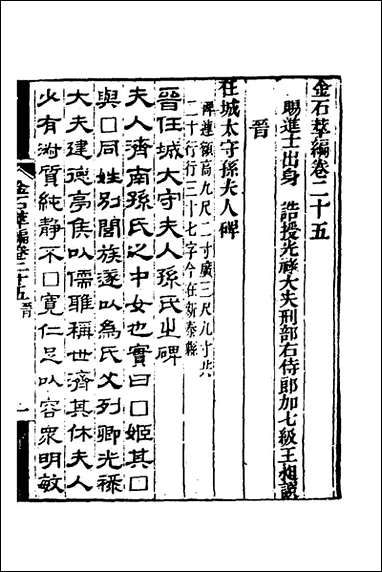 金石萃編卷二十五
賜進士出身 誥授光祿大夫刑部右侍郎加七級王昶譔
晉
任城太守孫夫人碑
碑連額高九尺二寸廣三尺九寸共
二十行行三十七字今在新泰縣
晉任城太守夫人孫氏之碑
夫人濟南孫氏之中女也實曰□姬其□
與□同姓別閭族遂以爲氏父列卿光祿
大夫建德亭侯以儒雅稱世濟其休夫人
少有淑質純靜不□寬仁足以容衆明敏
金石萃編卷二十五 晉 一